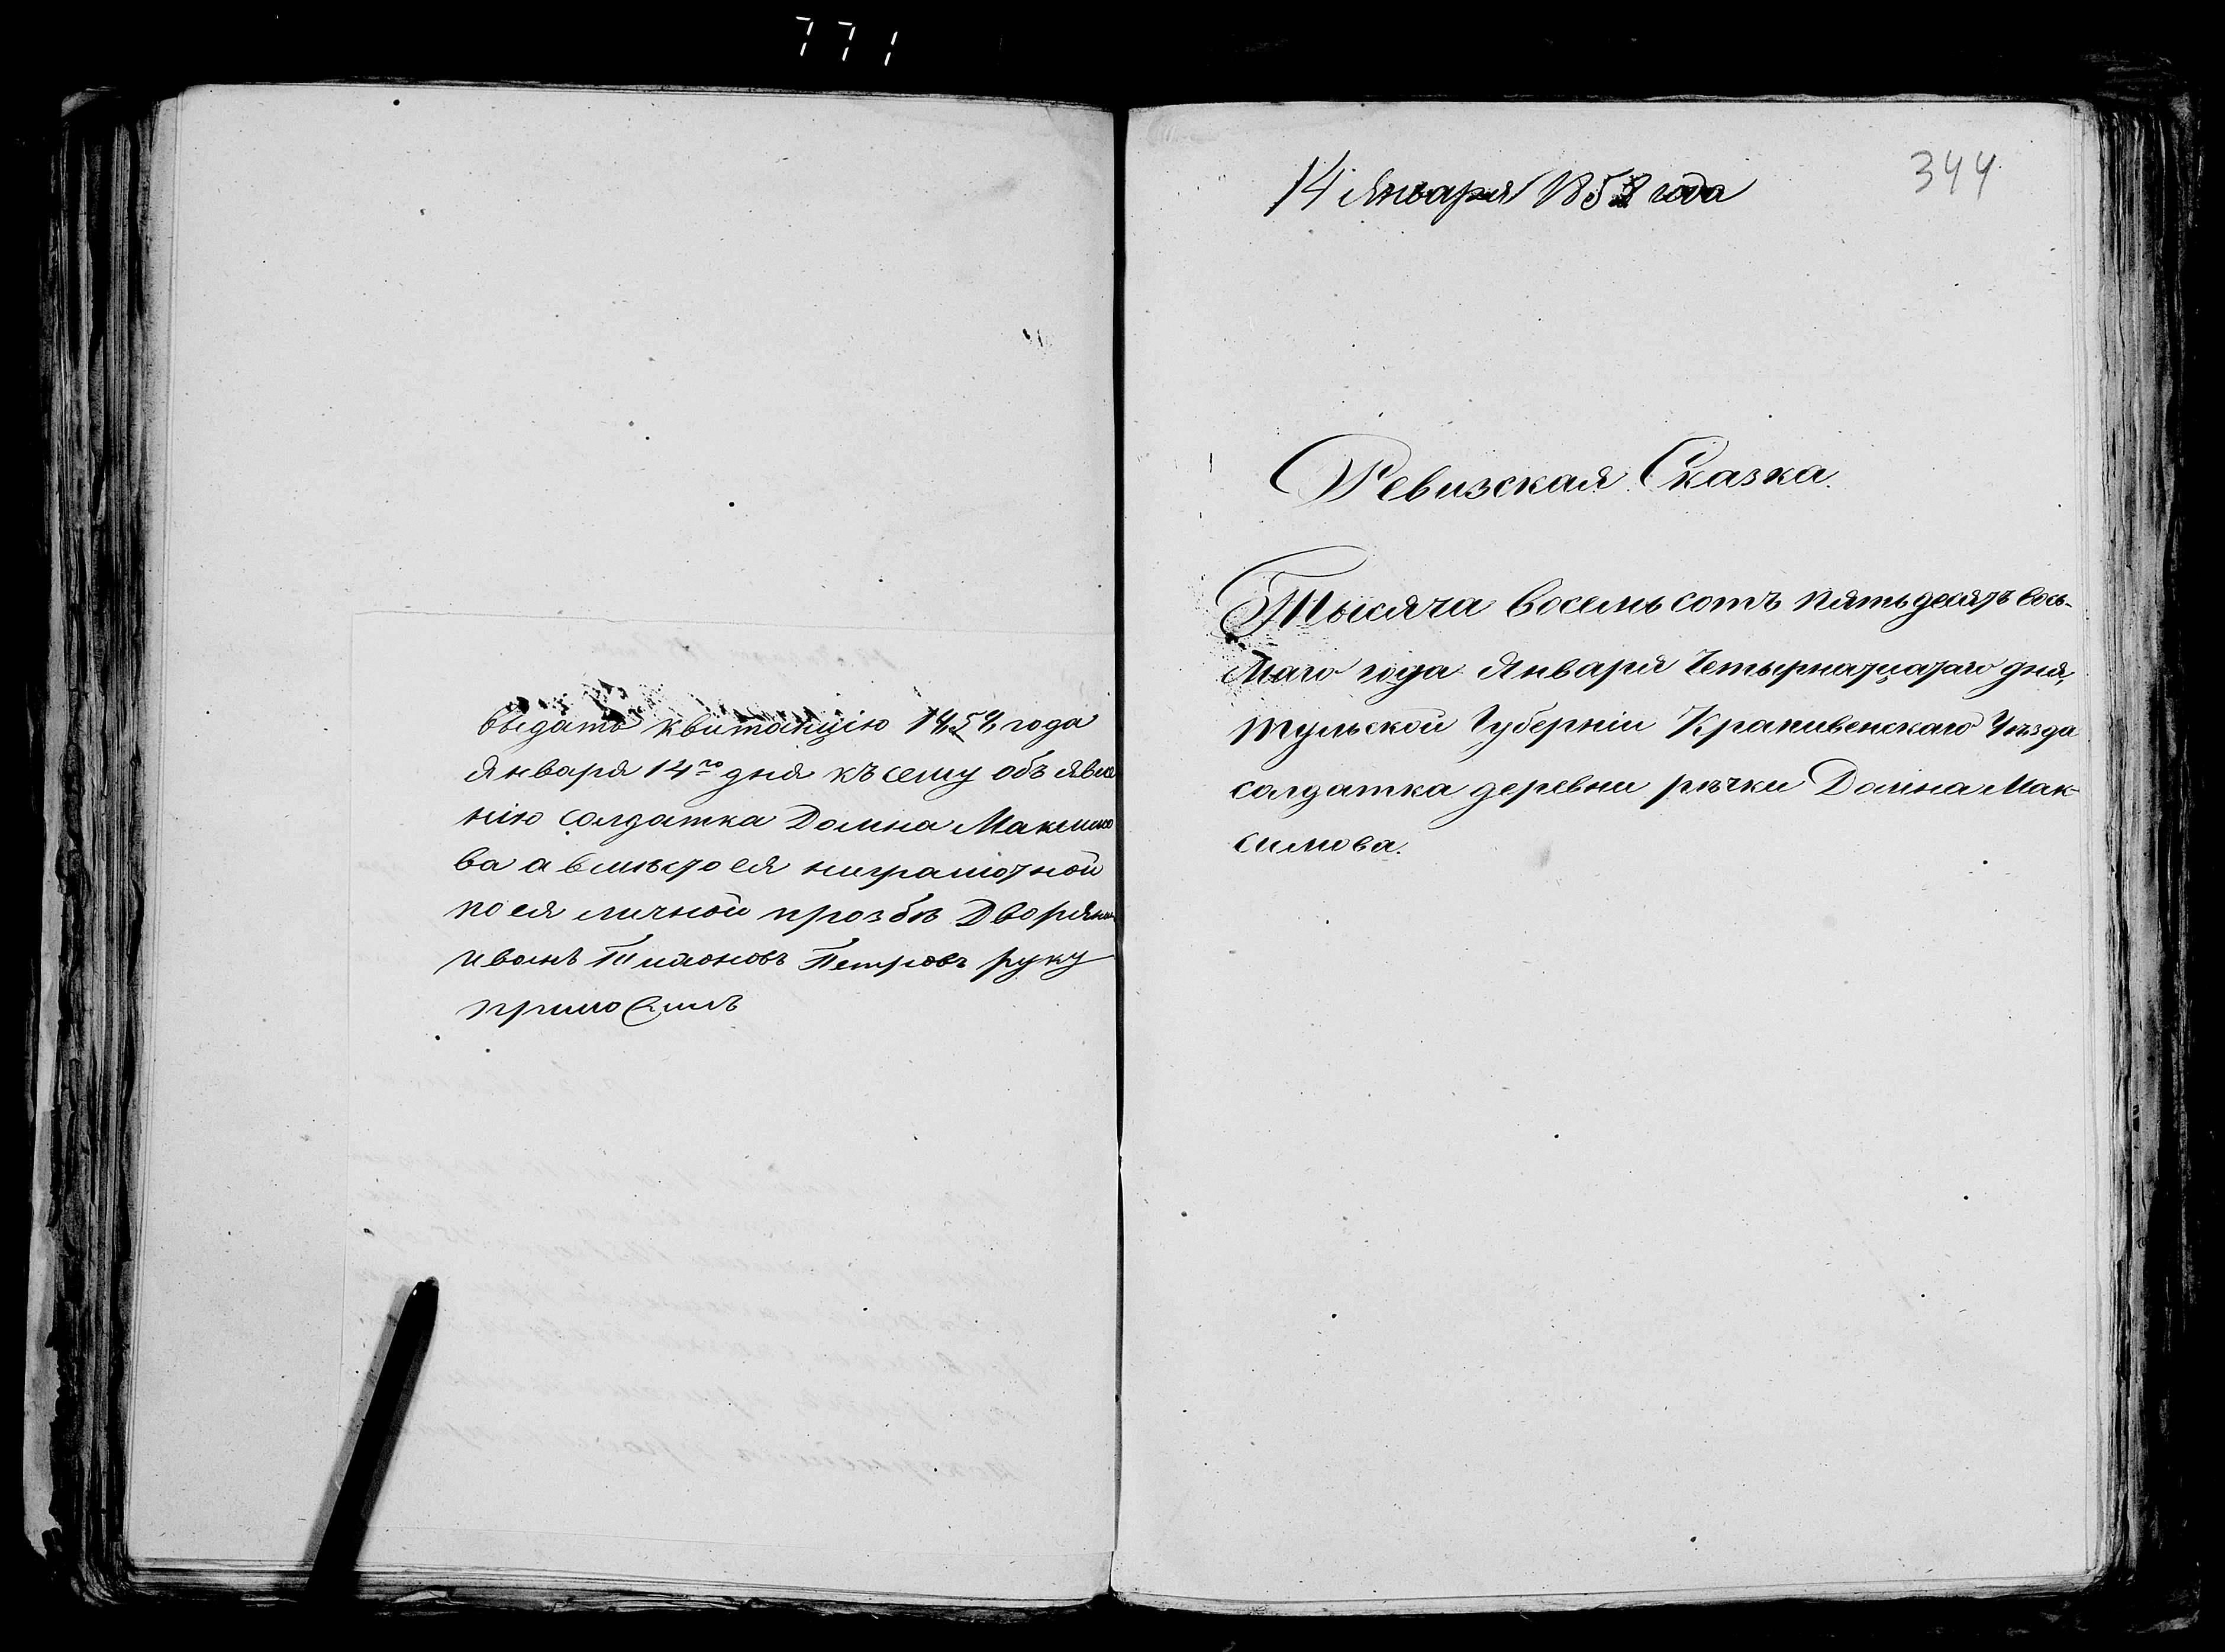 771
выдать квитанцію 1858 года
Января 14го дня къ сему объявле
нію солдатка Домна Максимо
ва а вмѣсто ея ниграмотной
по ея личной прозбѣ Дворянин
иванъ Петровъ руку
приложилъ
14 Января 1858 года
344
Ревизская Сказка.
Тысяча восемь сотъ пять десятъ вось-
маго года Января Четырнатцатаго дня,
тульской Губерніи Крапивенскаго Уѣзда
солдатка деревни рѣчки Домна Мак-
симова.